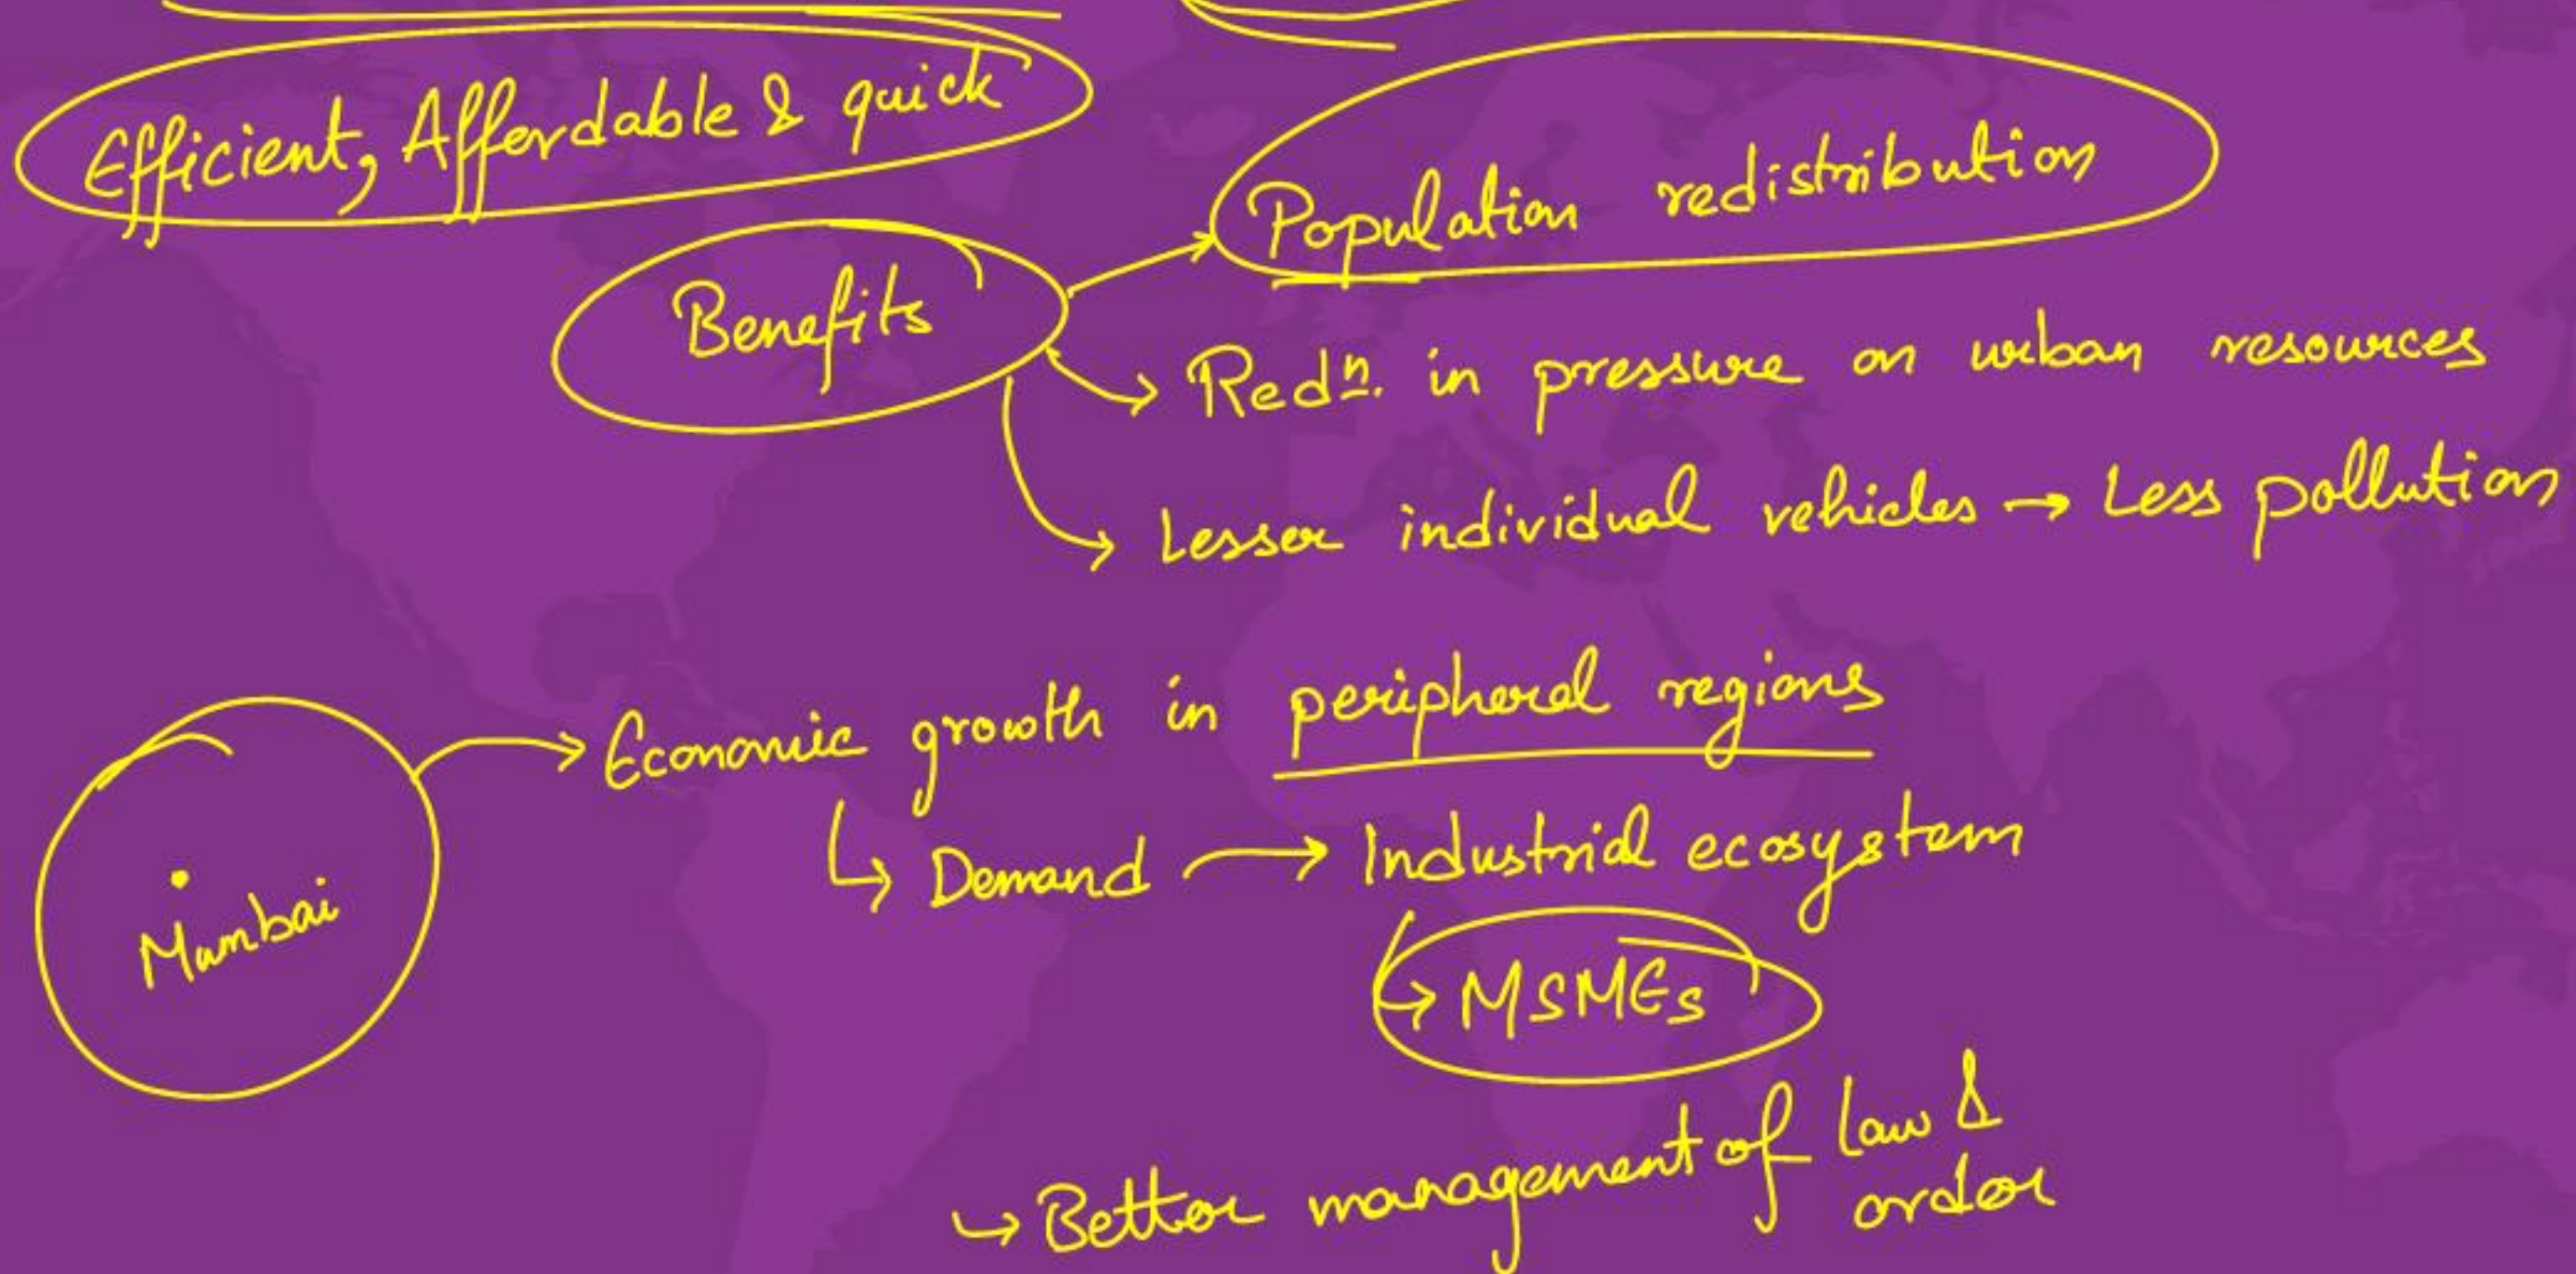 Efficient, Affordable & quick
Population redistribution
Benefits
Redn. in pressure on urban resources
Lesser individual vehicles → Less pollution
Economic growth in peripheral regions
Demand → Industrial ecosystem
Mumbai
MSMEs
Better management of law &
order